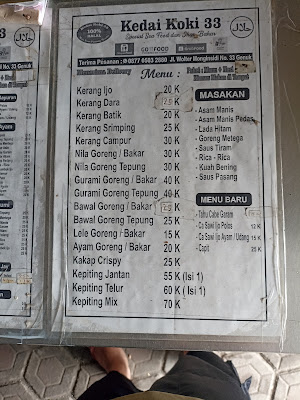 Kedai Koki 33
Special Sea Food dan Ikan Bakar
100%
HALAL
GOFOOD
Terima Pesanan : 0877 4603 2880 Jl. Wolter Monginsidi No. 33 Genuk
Menu :
Kerang Ijo 20 K
Kerang Dara
Kerang Batik 20 K
Kerang Srimping 25 K
Kerang Campur 30 K
Nila Goreng / Bakar 30 K
Nila Goreng Tepung 30 K
Gurami Goreng / Bakar 40 K
Gurami Goreng Tepung 40 K
Bawal Goreng / Bakar
Bawal Goreng Tepung 25 K
Lele Goreng / Bakar 15 K
Ayam Goreng / Bakar 20 K
Kakap Crispy 25 K
Kepiting Jantan 55 K (Isi 1)
Kepiting Telur 60 K ( Isi 1)
Kepiting Mix 70 K
MASAKAN
- Asam Manis
- Asam Manis Pedas
- Lada Hitam
- Goreng Metega
- Saus Tiram
- Rica - Rica
- Kuah Bening
- Saus Pasang
MENU BARU
- Tahu Cabe Garam
- Ca Sawi Ijo Polos 12 K
- Ca Sawi Ijo Ayam / Udang 15 K
- Capit 25 K